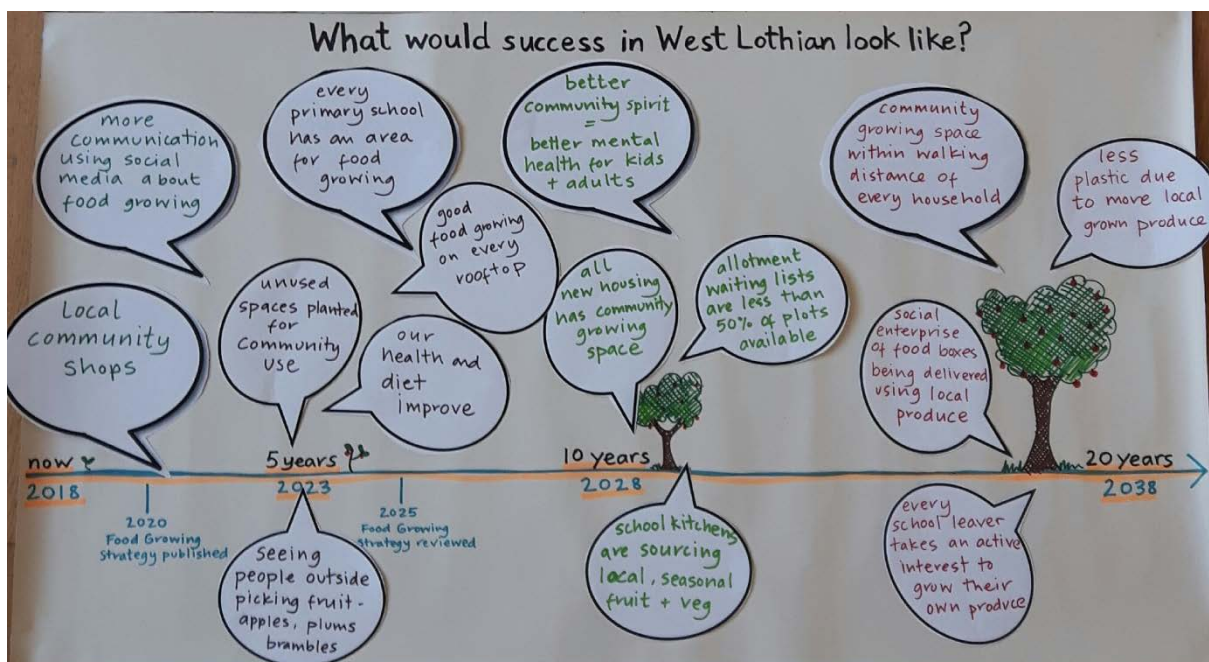 What would success in West Lothian look like?
more
communication
using social
media about
food growing
every
primary school
has an area
for food
growing
better
community spirit
=
better mental
health for kids
+ adults
community
growing space
within walking
distance of
every household
less
plastic due
to move local
grown produce
good
food growing
on every
rooftop
Local
community
shops
unused
spaces planted
for
community
use
our
health and
diet
improve
all
new housing
has community
growing
space
allotment
waiting lists
are less than
50% of plots
available
social
enterprise
of food boxes
being delivered
using local
produce
now
2018
2020
Food Growing
Strategy published
5 years
2023
2025
Food Growing
Strategy reviewed
10 years
2028
20 years
2038
seeing
people outside
picking fruit-
apples, plums
brambles
school kitchens
are sourcing
local, seasonal
fruit + veg
every
school leaver
takes an active
interest to
grow their
own produce